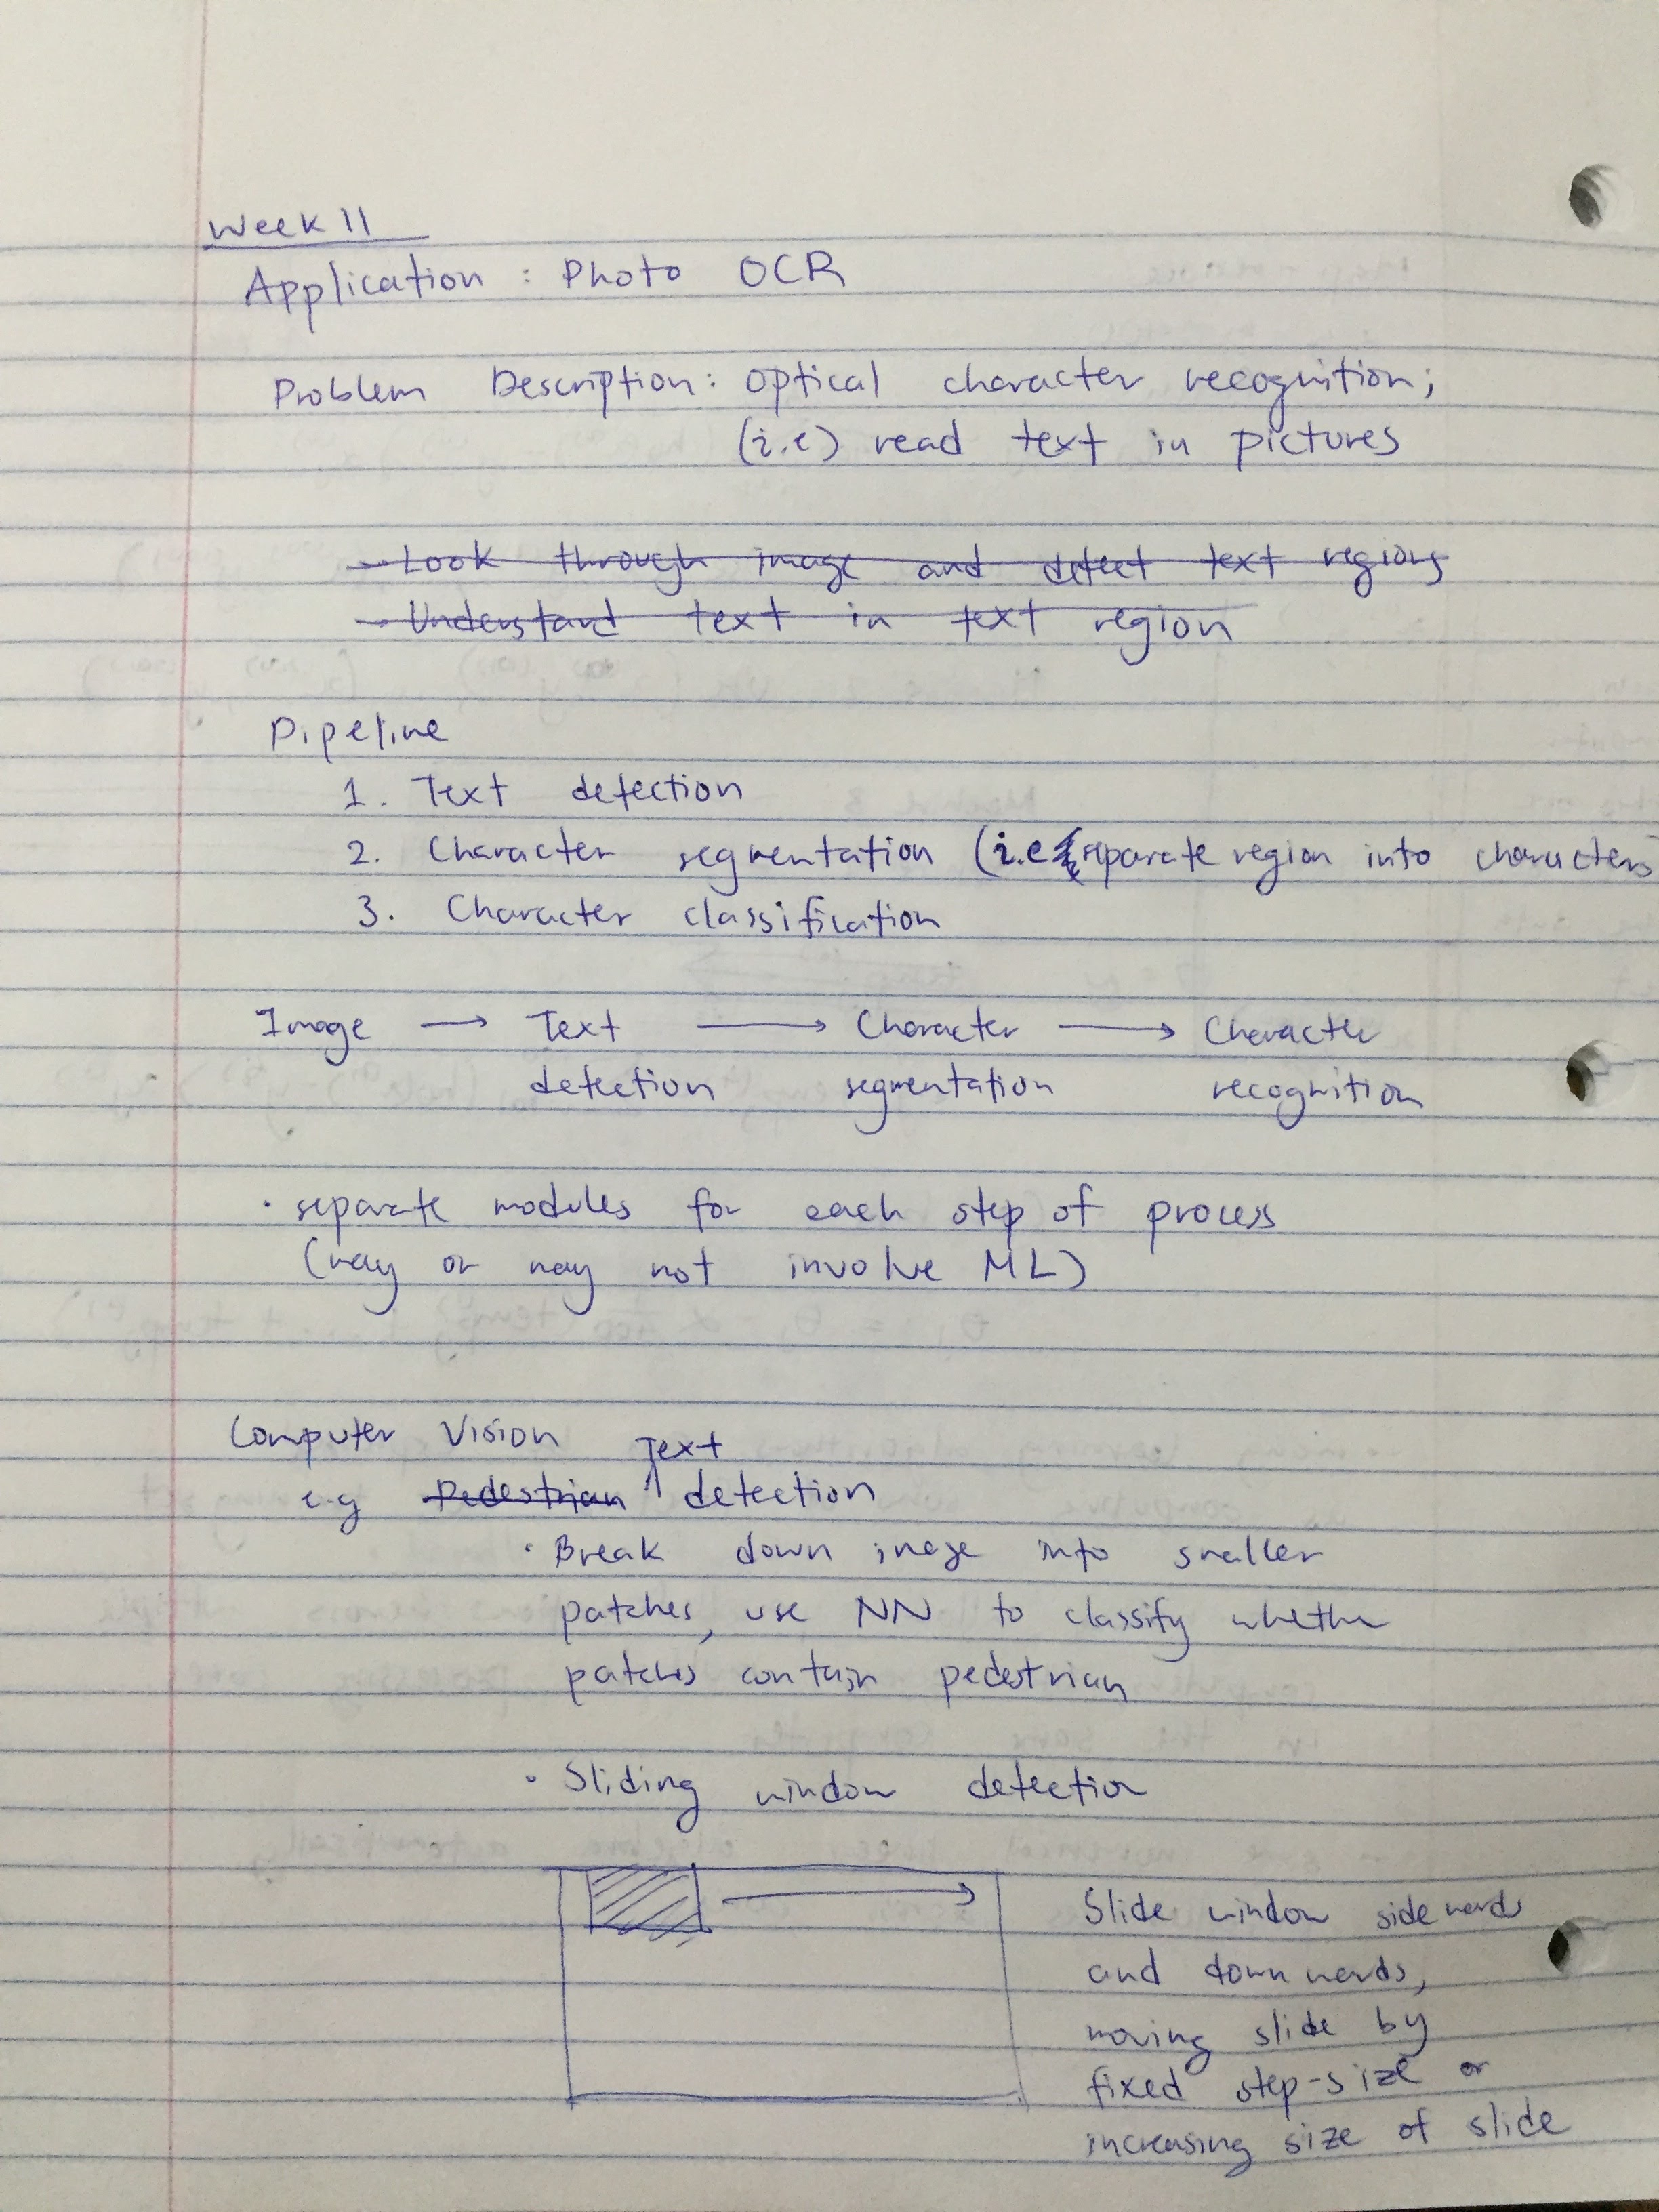 Week 11
Application : Photo OCR
Problem Description: optical character recognition;
(i.e) read text in pictures
- Look through image and detect text regions
- Understand text in text region
Pipeline
1. Text detection
2. Character segmentation (i.e separate region into characters
3. Character classification
Image → Text → Character → Character
detection segmentation recognition
· separate modules for each step of process
(may or may not involve ML)
Computer Vision
Text
e.g Pedestrian detection
· Break down image into smaller
patches, use NN to classify whether
patches contain pedestrian
· Sliding window detection
Slide window sidewards
and downwards,
moving slide by
fixed step-size or
increasing size of slide